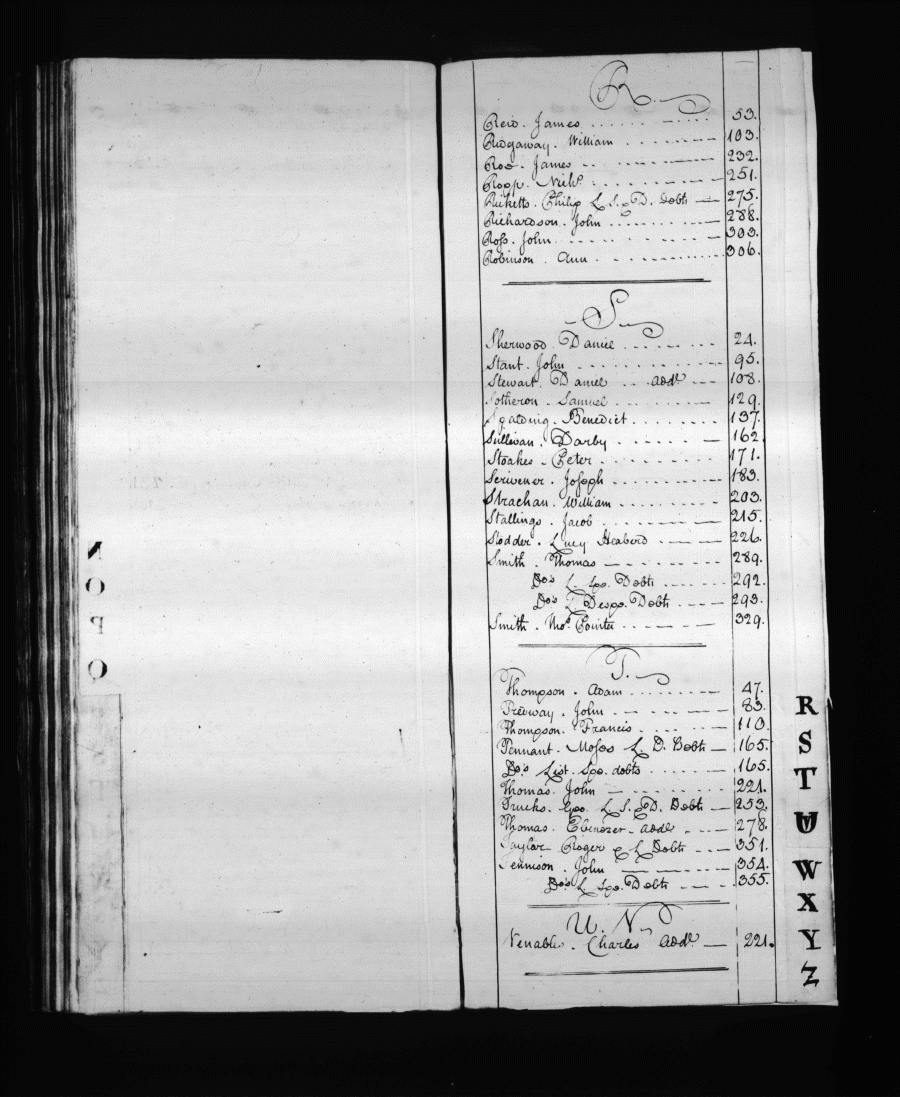 R.
Reid. James 53.
Ridgaway. William 103.
Roe. James 232.
Ropp. Nichs. 251.
Ricketts. Philip L. S. & D. Debts 275.
Richardson. John 288.
Ross. John 303.
Robinson. Ann 306.
S.
Sherwood. Daniel 24.
Stant. John 95.
Stewart. Daniel addl. 108.
Sotheron. Samuel 129.
Spalding. Benedict 137.
Sullivan. Darby 162.
Stoakes. Peter 171.
Scrivener. Joseph 183.
Strachan. William 203.
Stallings. Jacob 215.
Stodder. Lucy Heaberd 226.
Smith. Thomas 289.
Do's L. Spe. Debts 292.
Do's L. Despe. Debts 293.
Smith. 329.
T.
Thompson. Adam 47.
Tredway. John 83.
Thompson. Francis 110.
Tennant. Moses L. D. Debts 165.
Do's List. Spe. debts 165.
Thomas. John 221.
Trucks. Geo. L. S. & D. Debts 253.
Thomas. Ebenezer addl. 278.
Taylor Roger & L Debts 351.
Tennison. John 354.
Do's L. Spe. Debts 355.
U. V.
Venables. Charles addl. 221.
N
O
P
Q
R
S
T
W
X
Y
Z